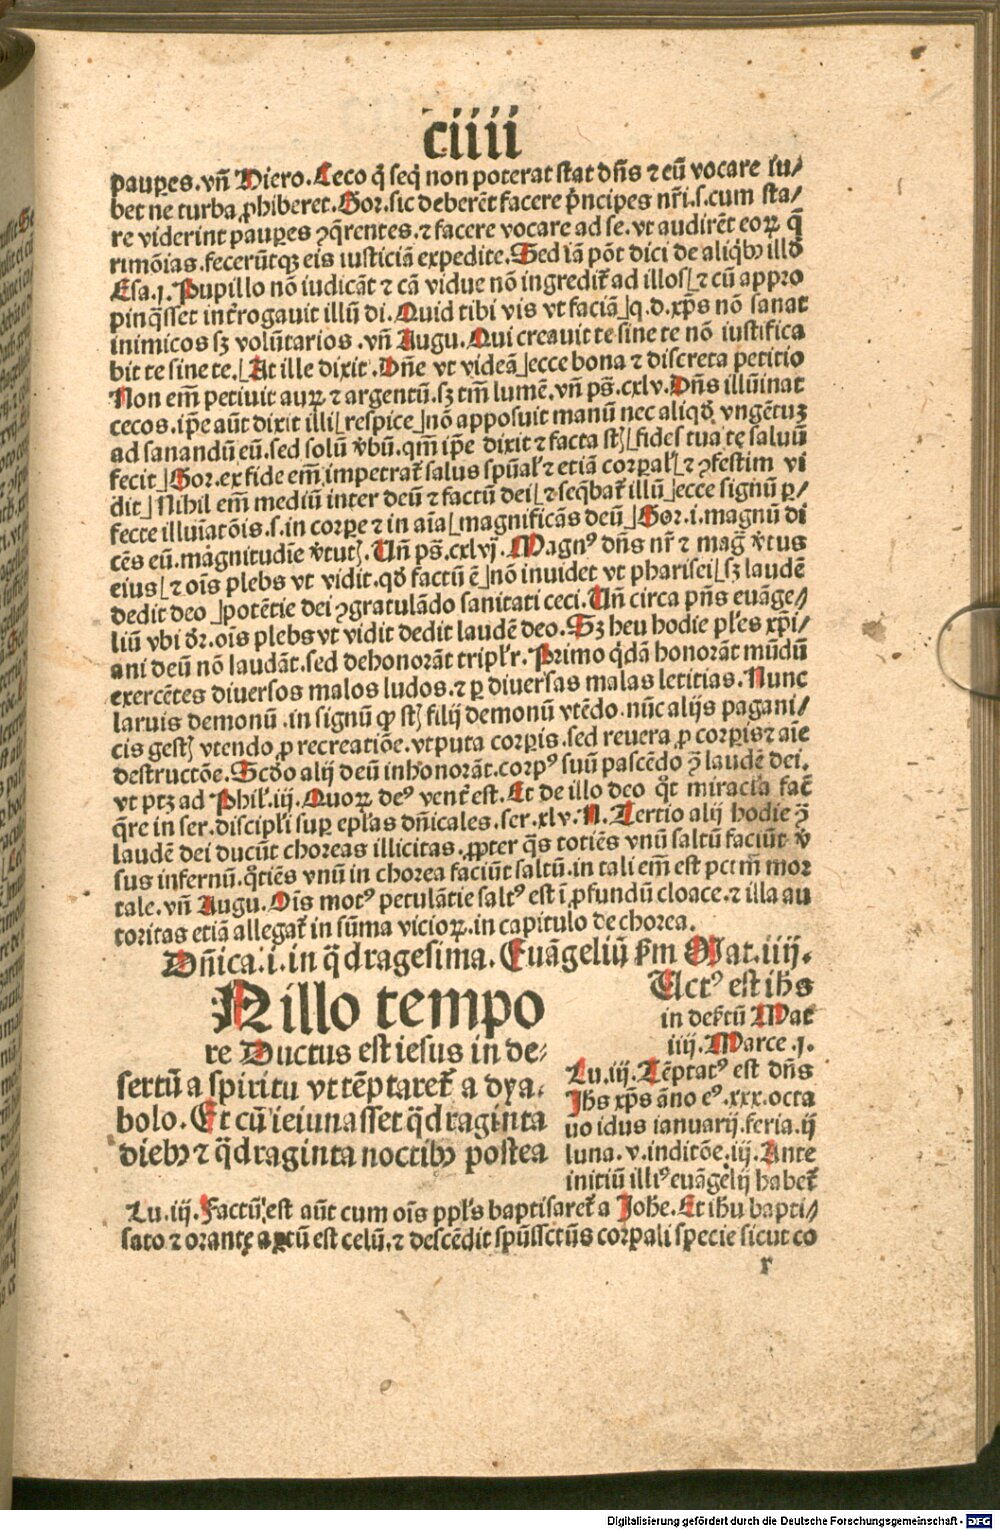 ciiii
paup̲es.vn̄ Hiero.Ceco q̄ seq̄ non poterat stat dn̄s ⁊ eū vocare iu/
bet ne turba ꝓhiberet. Gor.sic deberēt facere p̄ncipes nr̄i.s.cum sta/
re viderint paup̲es ꝯq̄rentes.⁊ facere vocare ad se.vt audirēt eoꝝ q̄
rimōias.fecerūtqꝫ eis iusticiā expedite.Sed iā pōt dici de aliqbꝰ illđ
Esa.j.Pupillo nō iudicāt ⁊ cā vidue nō ingredit᷑ ad illos[⁊ cū appro
pinq̄sset int̄rogauit illū di.Quid tibi vis vt faciā]q.d.xp̄s nō sanat
inimicos sꝫ volūtarios.vn̄ Augu.Qui creauit te sine te nō iustifica
bit te sine te.[At ille dixit.Dn̄e vt videā]ecce bona ⁊ discreta petitio
Non em̄ petiuit auꝝ ⁊ argentū.sꝫ tm̄ lumē.vn̄ ps̄.cxlv.Dn̄s illūinat
cecos.ip̄e aūt dixit illi[respice]nō apposuit manū nec aliqđ vngētuꝫ
ad sanandū eū.sed solū v̄bū.qm̄ ip̄e dixit ⁊ facta st̄[fides tua te saluū
fecit]Gor.ex fide em̄ impetrat᷑ salus spūal̄ ⁊ etiā corꝑal̄[⁊ ꝯfestim vi
dit]Nihil em̄ mediū inter deū ⁊ factū dei[⁊ seq̄bat᷑ illū]ecce signū ꝑ/
fecte illuīatōis.s.in corꝑe ⁊ in aīa[magnificās deū]Gor.i.magnū di
cēs eū.magnitudīe v̄tut̄.Un̄ ps̄.cxlvj.Magnꝰ dn̄s nr̄ ⁊ maḡ v̄tus
eius[⁊ oīs plebs vt vidit.qđ factū ē]nō inuidet vt pharisei[sꝫ laudē
dedit deo]potētie dei ꝯgratulādo sanitati ceci.Un̄ circa pn̄s euāge/
liū vbi dr̄.oīs plebs vt vidit dedit laudē deo.Sꝫ heu hodie pl̄es xp̄i/
ani deū nō laudāt.sed dehonorāt tripl̄r.Primo q̄dā honorāt mūdū
exercētes diuersos malos ludos.⁊ ꝑ diuersas malas letitias.Nunc
laruis demonū.in signū ꝙ st̄ filij demonū vtēdo.nūc alijs pagani/
cis gest̄ vtendo ꝓ recreatiōe.vtputa corꝑis.sed reuera ꝓ corꝑis ⁊ aīe
destructōe.Scđo alij deū inhonorāt.corpꝰ suū pascēdo ꝯ̄ laudē dei.
vt ptꝫ ad Phil̄.iij.Quoꝝ deꝰ vent᷑ est.Et de illo deo q̄t miracl̄a fac̄
q̄re in ser.discipl̄i sup ep̄las dn̄icales.ser.xlv.N.Tertio alij hodie ꝯ̄
laudē dei ducūt choreas illicitas.ꝓpter q̄s totiēs vnū saltū faciūt v̄
sus infernū.q̄tiēs vnū in chorea faciūt saltū.in tali em̄ est pctm̄ mor
tale.vn̄ Augu.Oīs motꝰ petulātie saltꝰ est ī ꝓfundū cloace.⁊ illa au
toritas etiā allegat᷑ in sūma vicioꝝ.in capitulo de chorea.
Dn̄ica.i.in q̄dragesima.Euāgeliū s̄m Mat.iiij.
IN illo tempo
re Ductus est iesus in de/
sertū a spiritu vt tēptaret᷑ a dya.
bolo.Et cū ieiunasset q̄draginta
diebꝰ ⁊ q̄draginta noctibꝰ postea
Uctꝰ est ih̄s
in des̄tū Mat
iiij.Marce.j.
Lu.iij.Tēptatꝰ est dn̄s
Ih̄s xp̄s āno eꝰ.xxx.octa
uo idus ianuarij.feria.ij
luna.v.inditōe.iij.Ante
initiū illiꝰ euāgelij habet᷑
Lu.iij.Factū est aūt cum oīs ppl̄s baptisaret᷑ a Joh̄e.Et ih̄u bapti/
sato ⁊ orante aꝑtū est celū.⁊ descēdit spūssctūs corꝑali specie sicut co
r
Digitalisierung gefördert durch die Deutsche Forschungsgemeinschaft - DFG